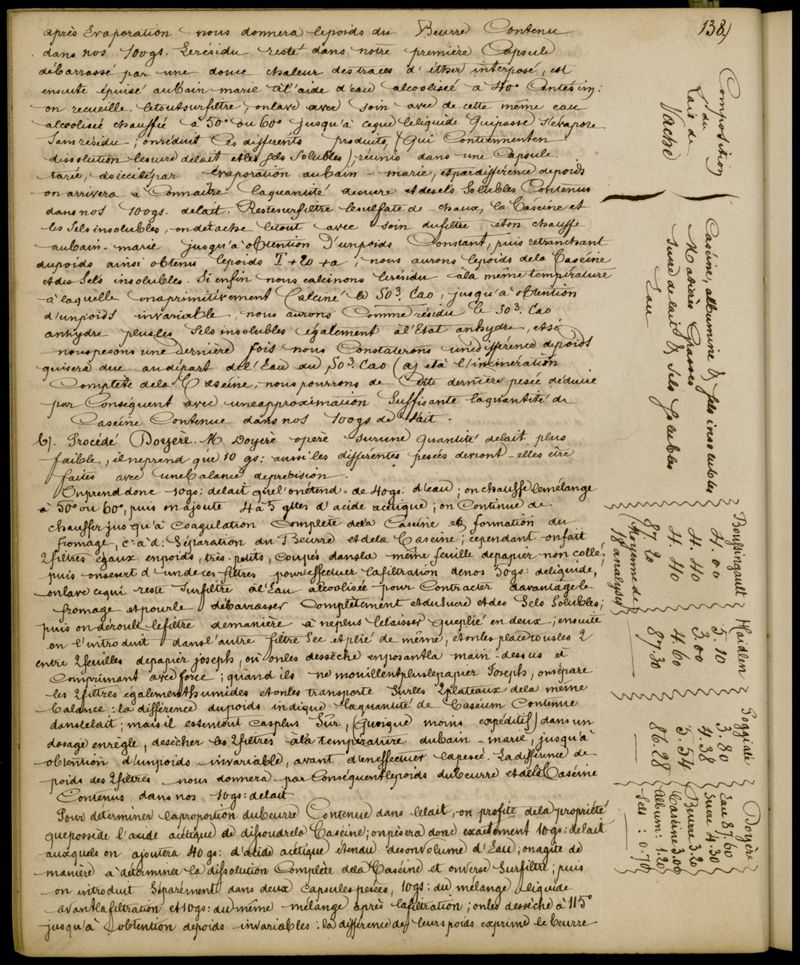 138)
après Evaporation nous donnera lepoids du Beurre Contenu
dans nos 100gs. Lerésidu resté dans notre première Capsule
débarrassé par une douce chaleur des traces d'éther interposé, est
ensuite épuisé aubain-marie à l'aide d'eau alcoolisée à 40° Centésim:
on recueille letoutsurfiltre, onlave avec soin avec de cette même eau
alcoolisée chauffée à 50° ou 60° jusqu'à ceque leliquide quipasse s'évapore
Sans résidu; onréduit Ces différents produits, (Qui Contiennent en
dissolution lesucre delait etles Sels Solubles), réunis dans une Capsule
tarée, dsiccité par évaporation aubain-marie, etpardifférence depoids
on arrivera à Connaître laquantité desucre etdesels Solubles Contenus
dans nos 100gs. delait. Restesurfiltre lesulfate de chaux, la Caséine et
les Sels insolubles, ondétache letout avec soin dufiltre eton chauffe
aubain-marie jusqu'à obtention d'unpoids Constant, puis retranchant
dupoids ainsi obtenu lepoids T+20+a; nous aurons lepoids dela Caséine
etdes Sels insolubles. Si enfin nous calcinons lerésidu àla même température
à laquelle onaprimitivement Calciné le SO³. Cao, jusqu'à obtention
d'unpoids invariable, nous aurons Comme résidu le SO³. Cao
anhydre plus les Sels insolubles également à l'Etat anhydre, etsi
nouspesons une dernière fois nous Constaterons unedifférence depoids
quisera due audépart del'Eau du SO³. Cao (a) età l'incinération
Complète dela Caséine; nous pourrons de Cette dernière pesée déduire
par Conséquent avec uneapproximation Suffisante laquantité de
Caséine Contenue dansnos 100gs de lait.
b). Procédé Doyère. M. Doyère opère surune quantité delait plus
faible, il neprend que 10 gs: aussi les différentes pesées devront-elles être
faites avec uneBalance deprécision.
Onprend donc 10gs: delait qu'el'onétend de 40gs. d'eau; on chauffe lemélange
à 50° ou 60°, puis on ajoute 4 à 5 gttes d'acide acétique; on Continue de
chauffer jusqu'à Coagulation Complète dela Caséine et formation du
fromage, c.-à-d: Séparation du Beurre et dela Caséine; cependant onfait
2 filtres égaux enpoids, très-petits, coupés dansla même feuille depapier non collé;
puis onsesert d'unde ces filtres poureffectuer lafiltration denos 50gs: deliquide,
onlave cequi reste surfiltre à l'Eau alcoolisée pour Contracter davantagele
fromage etpourle débarrasser Complètement etdusucre etdes Sels Solubles;
puis on déroule lefiltre demanière à neplus lelaisser queplié en deux; ensuite
on l'introduit dansl'autre filtre Sec et plié de même, et onles placetousles 2
entre 2 feuilles depapier joseph, où onles dessèche enposantla main-dessus et
Comprimant avec force; quand ils ne mouillent pluslepapier Joseph, onsépare
les 2 filtres égalementhumides etonles transporte Surles 2 plateaux dela même
balance: la différence dupoids indique laquantité de Caséum Contenue
danslelait; mais il estsurtout Casplus Sûr, (Quoique moins expéditif) dans un
dosage enrègle, desécher les 2 filtres àla température dubain-marie, jusqu'à
obtention d'unpoids invariable, avant d'eneffectuer lapesée. La différence de
poids des 2 filtres nous donnera par Conséquent lepoids dubeurre etdela Caséine
Contenus dans nos 10gs: delait.
Pour déterminer laproportion dubeurre Contenue dans lelait, on profite dela propriété
quepossède l'acide acétique de dissoudrela Caséine; onpèsera donc exactement 10gs: delait
auxquels on ajoutera 40 gs: d'acide acétique étendu desonvolume d'Eau; onagite de
manière à déterminer la dissolution Complète dela Caséine et onverse Surfiltre; puis
on introduit Séparément dans deux Capsules pesées, 10gs: du mélange liquide
avantlafiltration et 10gs: du même mélange après lafiltration; onles dessèche à 115°
jusqu'à obtention depoids invariables: la différence de leurs poids exprime le beurre
Composition
du
Lait de
Vache
Caséine, albumine & Sels insolubles
Matières Grasses
Sucre de lait & Sels Solubles
Eau
Boussingault
4.00
4.40
4.40
87.20
Moyenne de
18 analyses
Haidlen
5.10
3.00
4.60
87.30
Poggiale
3.80
4.38
5.54
86.28
Doyère
Eau 87.60
Sucre 4.30
Beurre 3.20
Caséine 3.00
Album: 1.20
Sels: 0.70